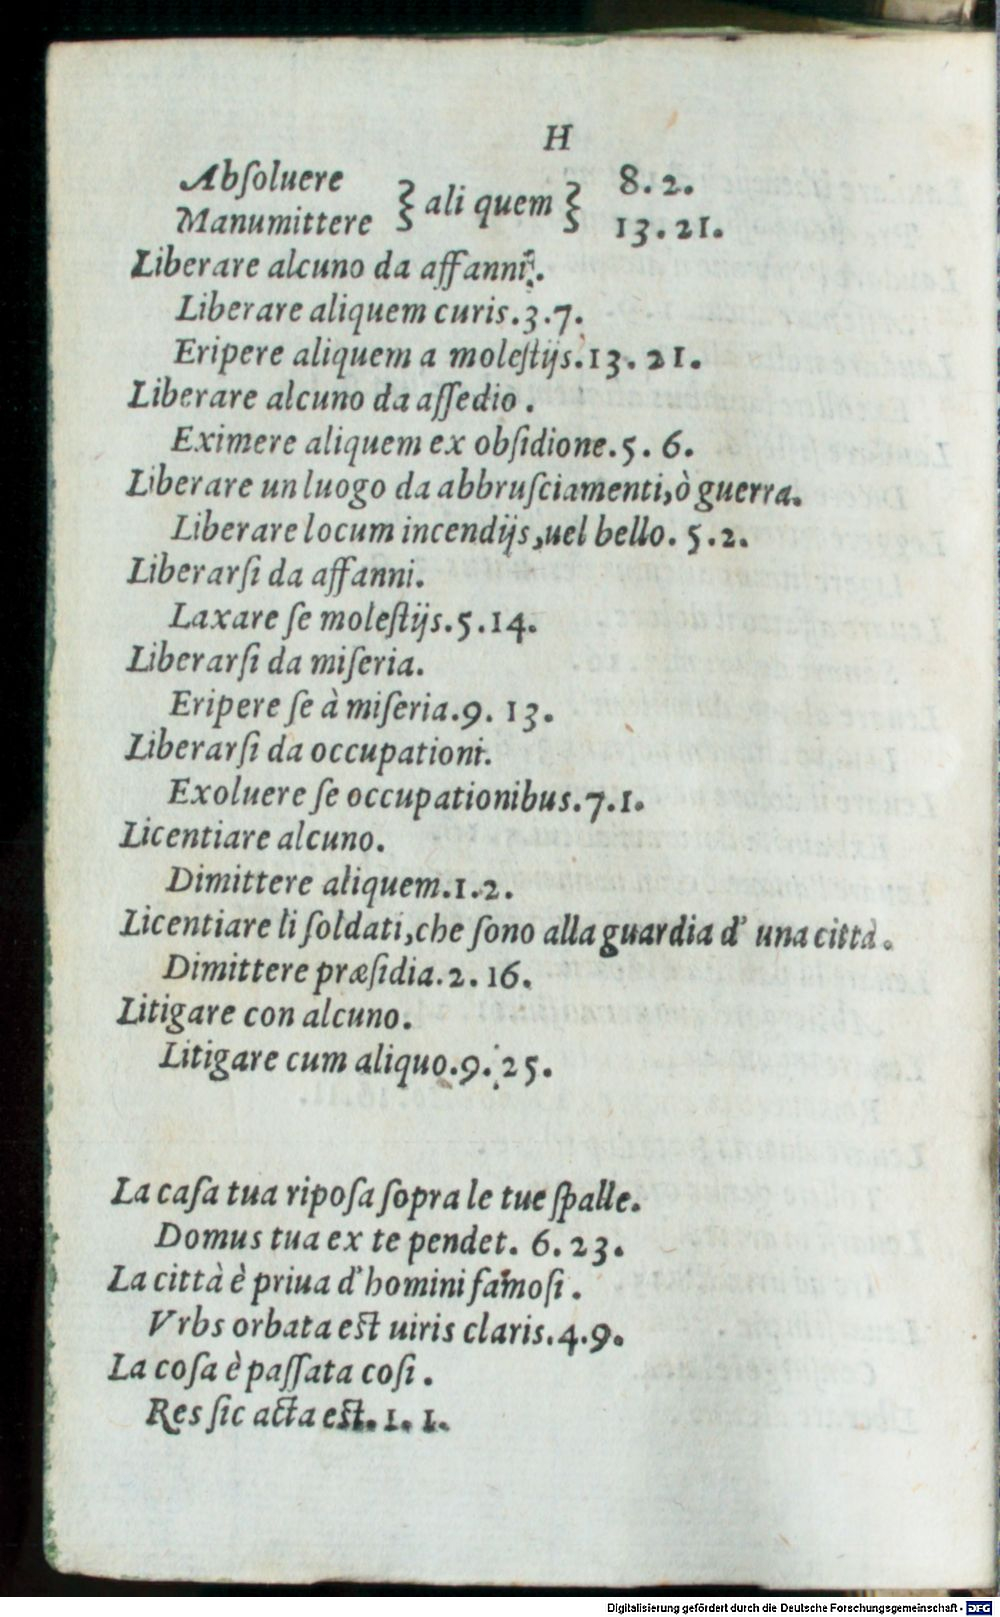 H
Abſoluere } ali quem } 8. 2.
Manumittere 13. 21.
Liberare alcuno da affanni.
Liberare aliquem curis. 3. 7.
Eripere aliquem a moleſtijs. 13. 21.
Liberare alcuno da aſſedio.
Eximere aliquem ex obſidione. 5. 6.
Liberare un luogo da abbruſciamenti, ò guerra.
Liberare locum incendijs, uel bello. 5. 2.
Liberarſi da affanni.
Laxare ſe moleſtijs. 5. 14.
Liberarſi da miſeria.
Eripere ſe à miſeria. 9. 13.
Liberarſi da occupationi.
Exoluere ſe occupationibus. 7. 1.
Licentiare alcuno.
Dimittere aliquem. 1. 2.
Licentiare li ſoldati, che ſono alla guardia d' una città.
Dimittere præſidia. 2. 16.
Litigare con alcuno.
Litigare cum aliquo. 9. 25.
La caſa tua ripoſa ſopra le tue ſpalle.
Domus tua ex te pendet. 6. 23.
La città è priua d' homini famoſi.
Vrbs orbata eſt uiris claris. 4. 9.
La coſa è paſſata coſi.
Res ſic acta eſt. 1. 1.
Digitalisierung gefördert durch die Deutsche Forschungsgemeinschaft - DFG